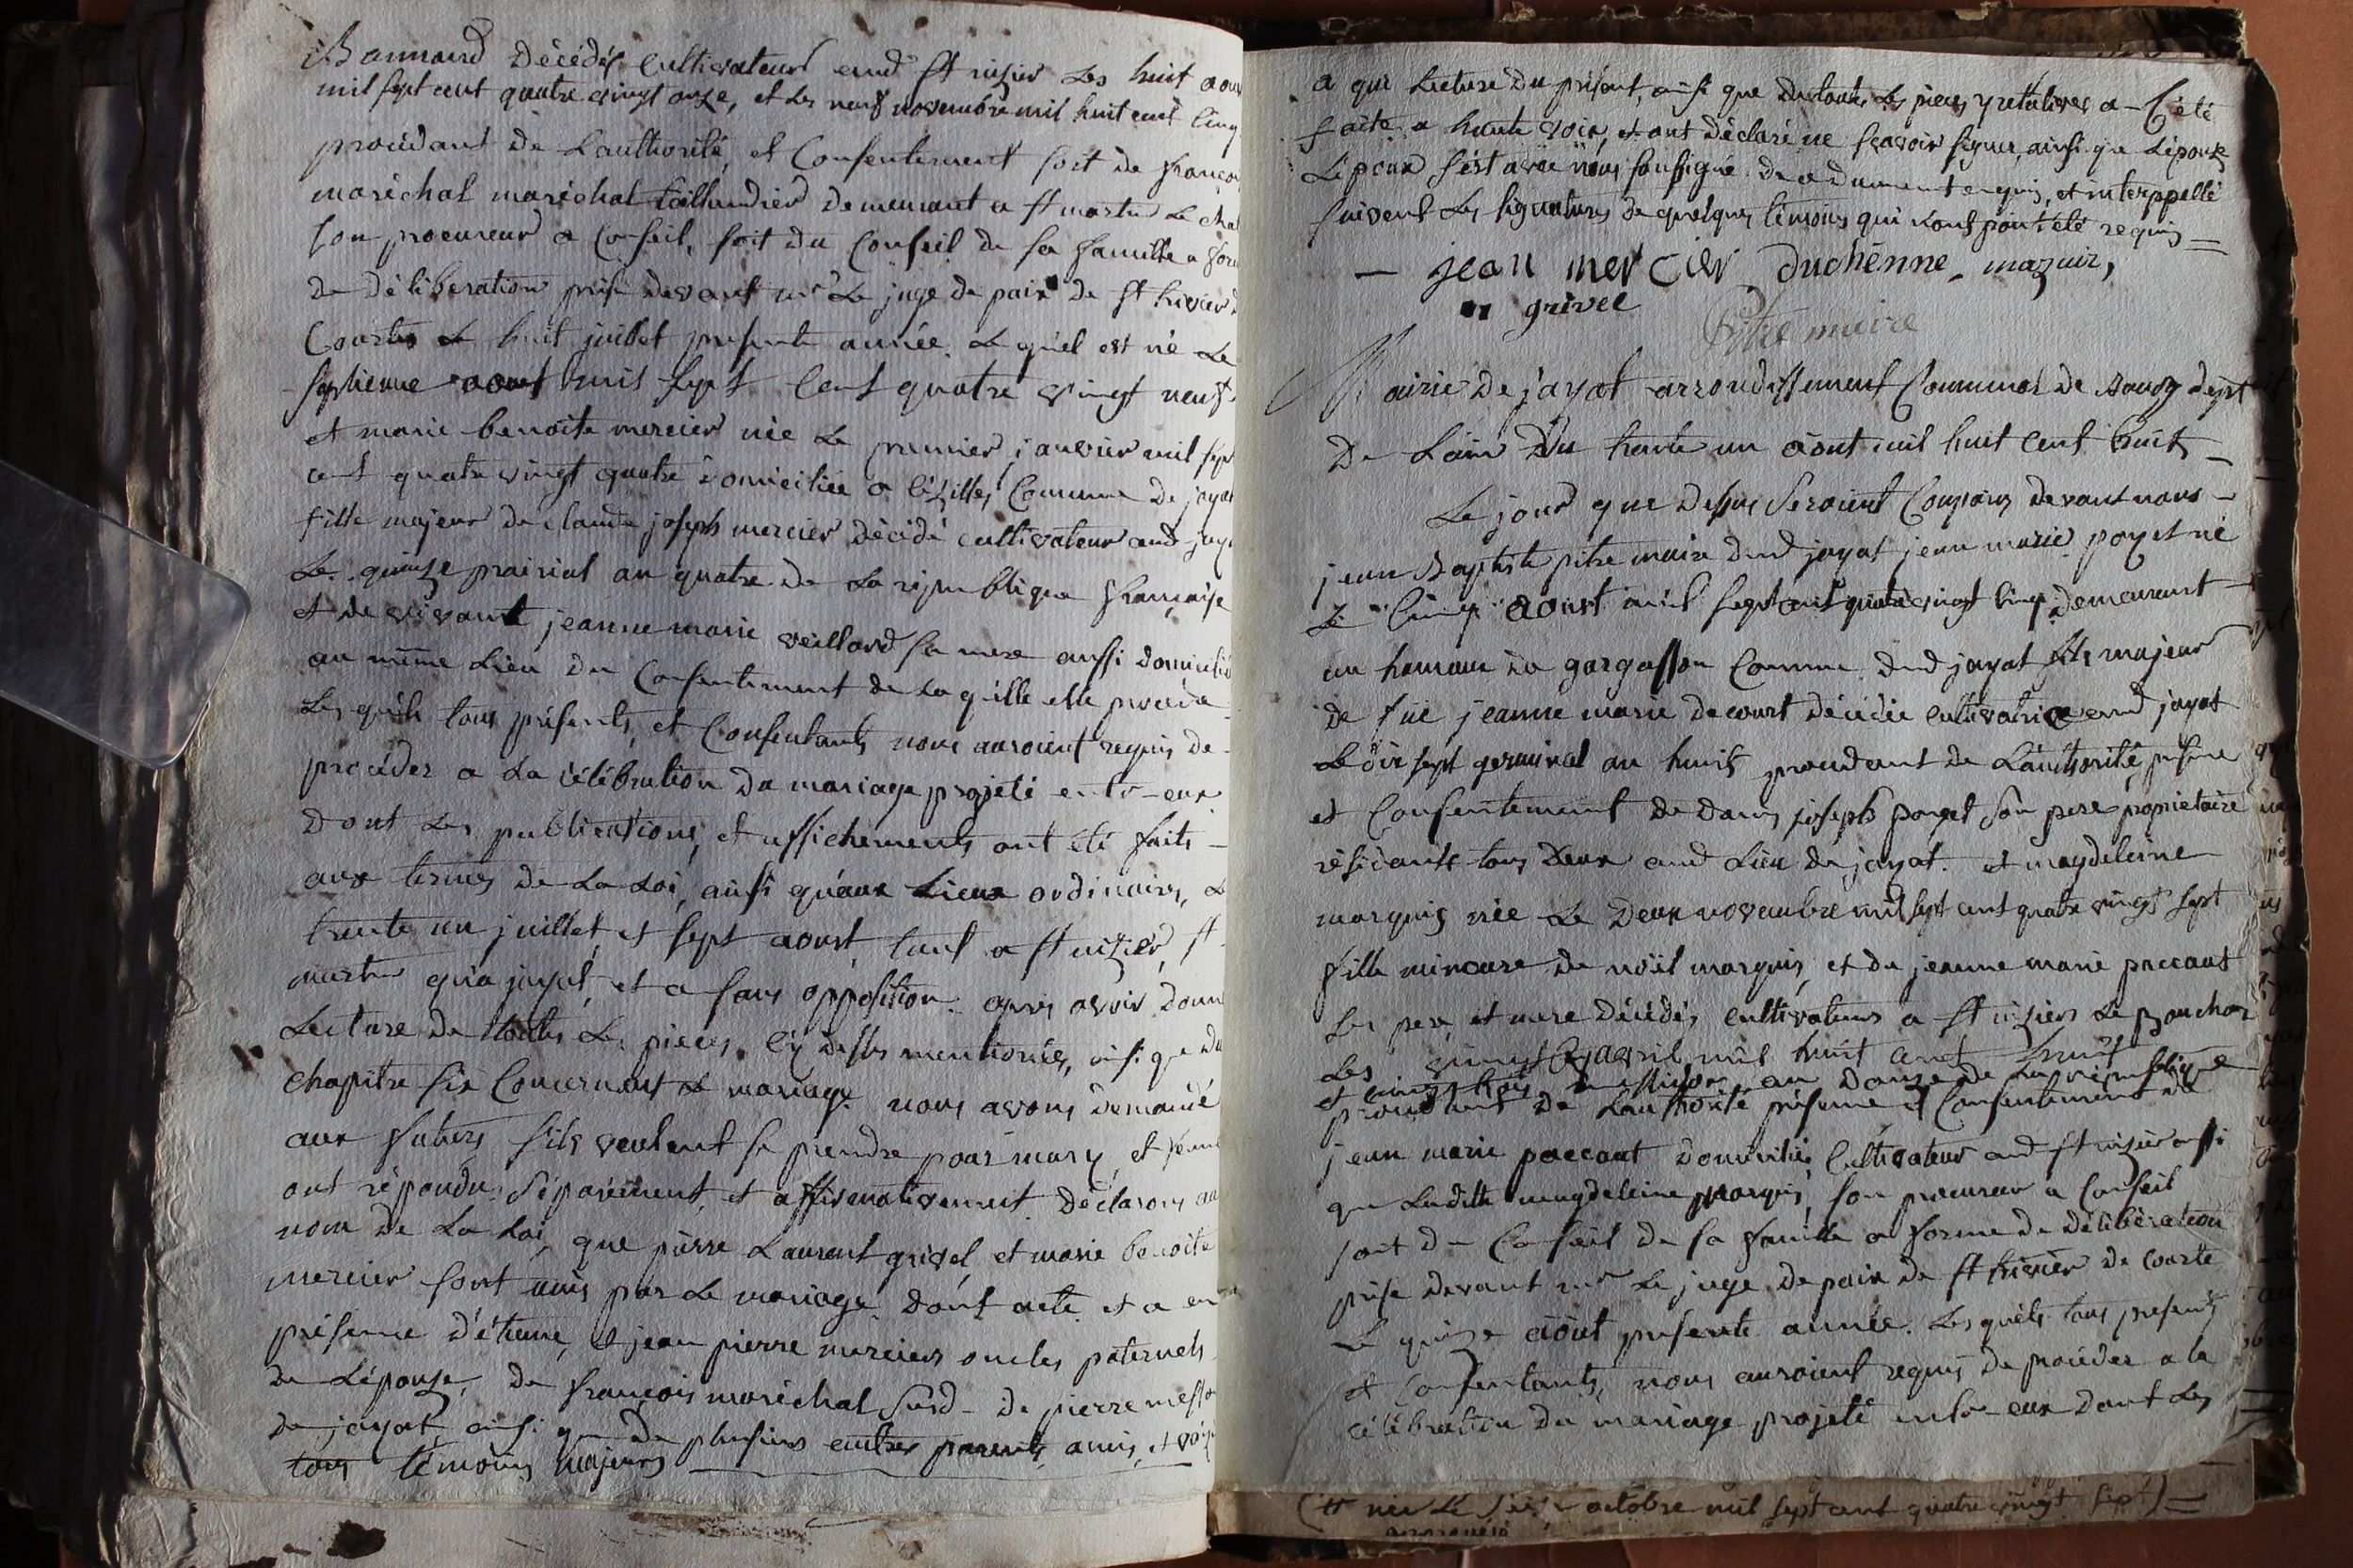 Bannand Décédés cultivateurs aud. st nizier Les huit aou
mil sept cent quatre vingt onze, et Les neuf novembre mil huit cent cinq
procédant de Lauthorité, et Consentement soit de françoi
maréchal maréchal taillandier demeurant a st martin Le chat
son procureur a Conseil, soit du Conseil de sa famille a for
de déliberation prise devant mr Le juge de paix de st trivier d
Courtes Le huit juillet presente année. Le quel est né Le
septieme aout mil sept cent quatre vingt neuf
et marie benoite mercier née Le premier janvier mil sept
cent quatre vingt quatre domiciliée a Commune de jayat
fille majeur de claude joseph mercier décédé cultivateur aud. jaya
Le quinze prairial an quatre de La république française
et de vivante jeanne marie veillard sa mere aussi domicilié
au même Lieu du Consentement de La quelle elle procede
Les quels tous présents, et Consentants nous auroient requis de
procéder a La célébration du mariage projeté entr-eux
dont Les publications, et affichements ont été faits
aux termes de La Loi, ainsi qu'aux Lieux ordinaires, Le
trente un juillet, et sept aoust, tant a st nizier, st
martin qu'a jayat, et a sans opposition. apres avoir donn
Lecture de toutes Les pieces cy dessus mentionées, ainsi que du
chapitre six Concernant Le mariage. nous avons demandé
aux futurs s'ils veulent se prendre pour mary, et femm
ont répondu séparément, et affirmativement. déclarons au
nom de La Loi, que pierre Laurent grivel, et marie benoite
mercier sont unis par Le mariage dont acte et a en
présence d'étienne, et jean pierre merciers oncles paternels
de L'épouze, de françois maréchal susd. de pierre
de jayat, ainsi que de plusieurs autres parents, amis, et voi
tous témoins majeurs
a qui Lecture du présent, ainsi que de toutes Les pieces y relatives a été
faite a haute voix, et ont déclaré ne sçavoir signer, ainsi que L'épouze
L'époux s'est avec nous soussigné de ce dument enquis, et interppellé
suivent Les signatures de quelques témoins qui n'ont point été requis
jean mercier duchênne mazuir,
grivel
pitre maire
Mairie de jayat arrondissement Communal de Bourg dept
de L'ain Du trente un aout mil huit cent huit
Le jour que dessus seroient Comparus devant nous
jean Baptiste pitre maire dud jayat jean marie poyet né
Le cinq aoust mil sept cent quatre vingt cinq demeurant
au hameau de gargasson Commune dud jayat fils majeur
de füe jeanne marie decourt décédée cultivatrice aud jayat
Le dix sept germinal an huit procédant de L'authorité, présence
et Consentement de joseph poyet son pere propriétaire
résidants tous deux aud Lieu de jayat. et magdeleine
marquis née Le deux novembre mil sept cent quatre vingt sept
fille mineure de noël marquis, et de jeanne marie paccaut
ses pere et mere décédés, cultivateurs a st niziers Le Bouchoux
Les vingt avril mil huit cent huit
et vingt trois messidor an douze de La république
procédant de Lauthorité présence et Consentement de
jean marie paccaut domicilié cultivateur aud st nizier ainsi
que Ladite magdeleine marquis, son procureur a Conseil
soit du Conseil de sa famille a forme de délibération
prise devant mr Le juge de paix de st trivier de courte
Le quinze aout presente année. Les quels tous presents
et Consentants, nous auroient requis de procéder a la
célébration du mariage projeté entr-eux dont Les
(# née Le octobre mil sept cent quatre vingt sept)
approuvé